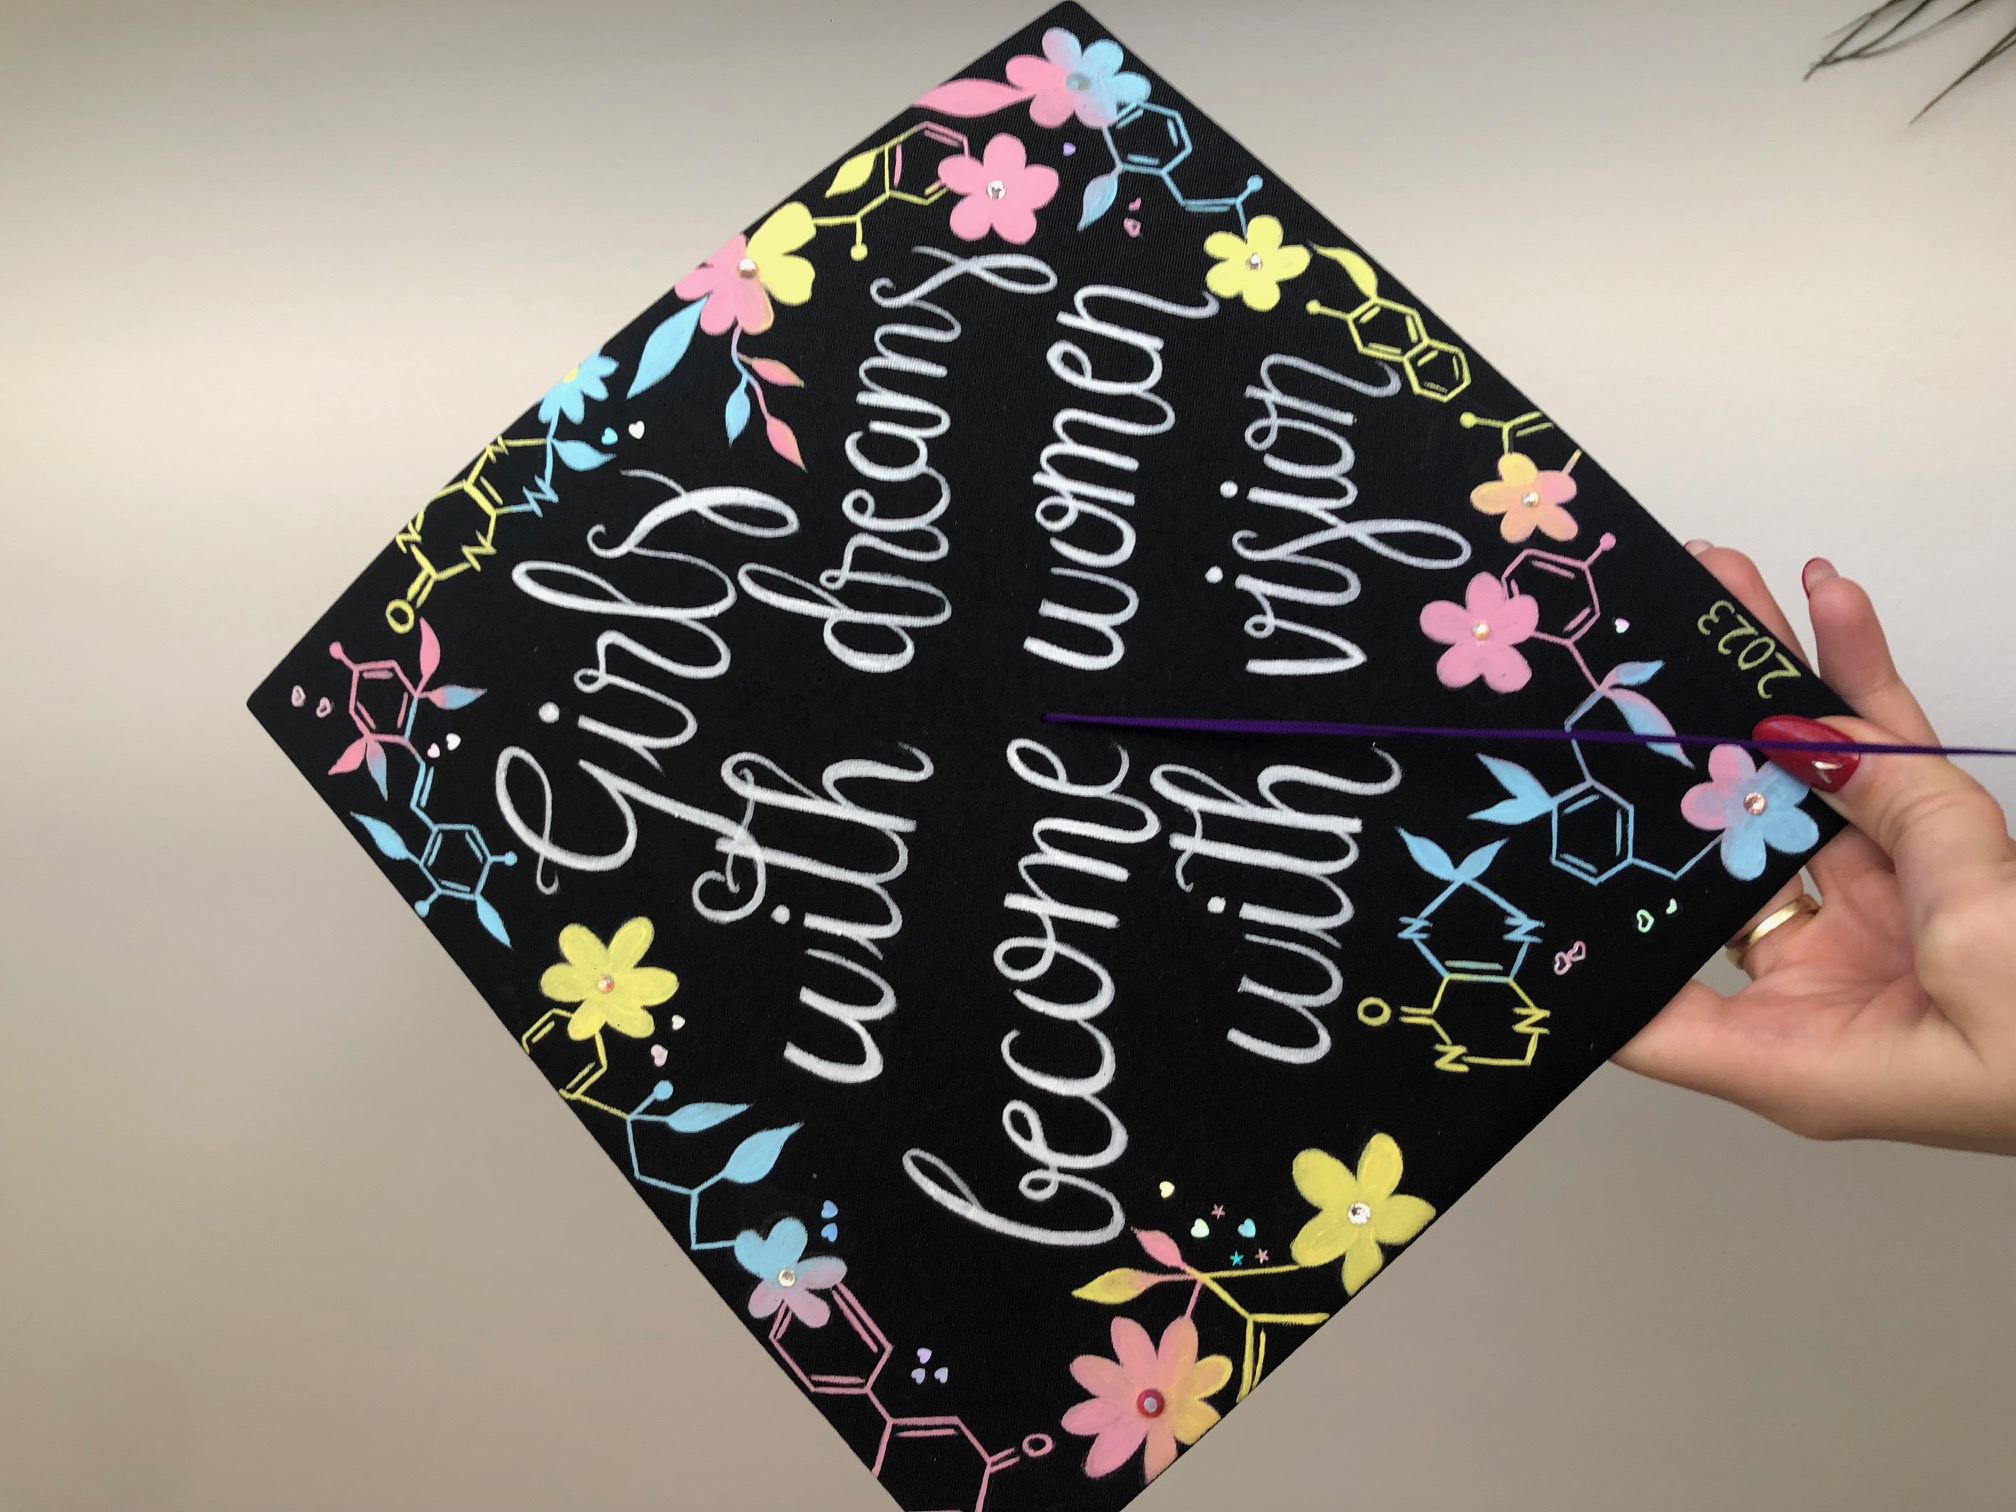 Girls
with dreams
become women
with vision
O
N
N
N
N
O
O
N
N
N
N
2023